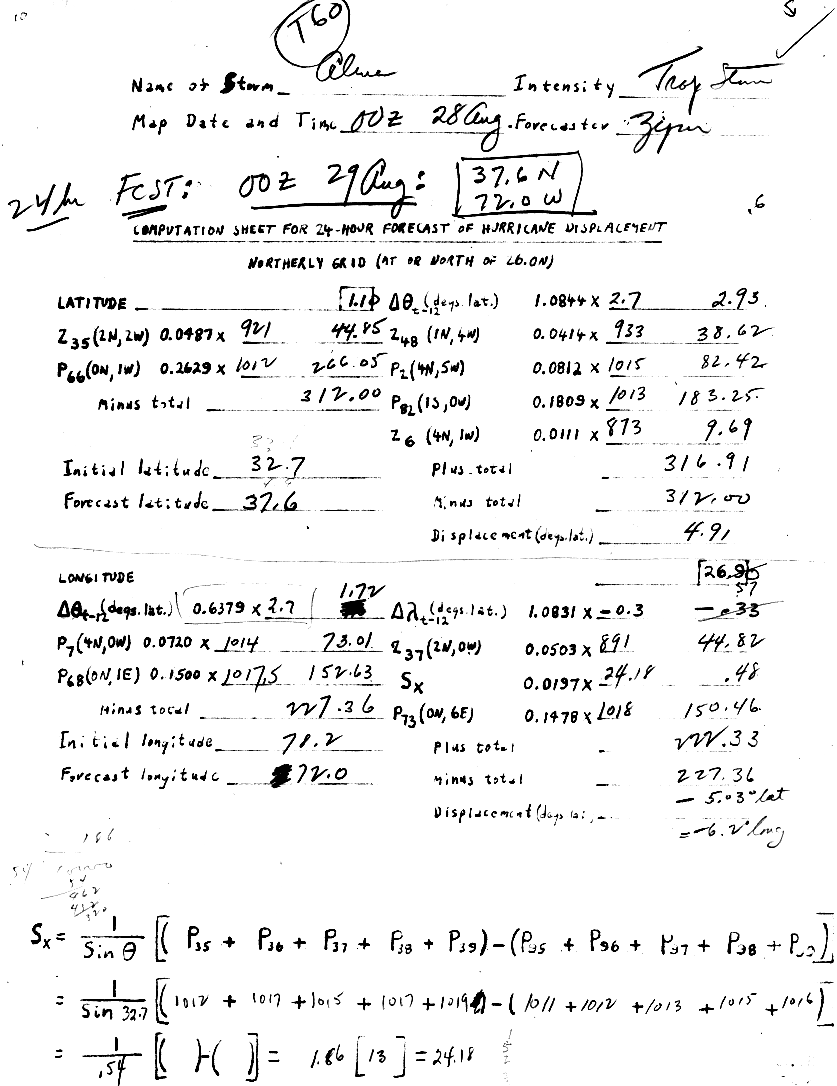 10
T60
Name of Storm Alma Intensity Trop Storm
Map Date and Time 00Z 28 Aug. Forecaster
24 hr FCST: 00Z 29 Aug: 37.6 N
72.0 W
.6
COMPUTATION SHEET FOR 24-HOUR FORECAST OF HURRICANE DISPLACEMENT
NORTHERLY GRID (AT OR NORTH OF 26.0N)
LATITUDE 1.10 Δθt-12 (degs. lat.) 1.0844 x 2.7 2.93
Z35 (2N, 2W) 0.0487 x 921 44.85 Z48 (1N, 4W) 0.0414 x 933 38.62
P66 (0N, 1W) 0.2629 x 1012 266.05 P2 (4N, 5W) 0.0812 x 1015 82.42
Minus total 312.00 P82 (1S, 0W) 0.1809 x 1013 183.25
Z6 (4N, 1W) 0.0111 x 873 9.69
Initial latitude 32.7 Plus total 316.91
Forecast latitude 37.6 Minus total 312.00
Displacement (degs. lat.) 4.91
LONGITUDE 26.90
57
Δθt-12 (degs. lat.) 0.6379 x 2.7 1.72 Δλt-12 (degs. lat.) 1.0831 x -0.3 -.33
P7 (4N, 0W) 0.0720 x 1014 73.01 Z37 (2N, 0W) 0.0503 x 891 44.82
P68 (0N, 1E) 0.1500 x 1017.5 152.63 Sx 0.0197 x 24.18 .48
Minus total 227.36 P73 (0N, 6E) 0.1478 x 1018 150.46
Initial longitude 78.2 Plus total 222.33
Forecast longitude 72.0 Minus total 227.36
Displacement (degs lat. - 5.03° lat
= -6.2° long
186
54
462
432
Sx = 1/Sin θ [( P35 + P36 + P37 + P38 + P39) - (P95 + P96 + P97 + P98 + P99)]
= 1/Sin 32.7 [( 1012 + 1017 + 1015 + 1017 + 1019) - ( 1011 + 1012 + 1013 + 1015 + 1016)]
= 1/.54 [( )-( )] = 1.86 [ 13 ] = 24.18